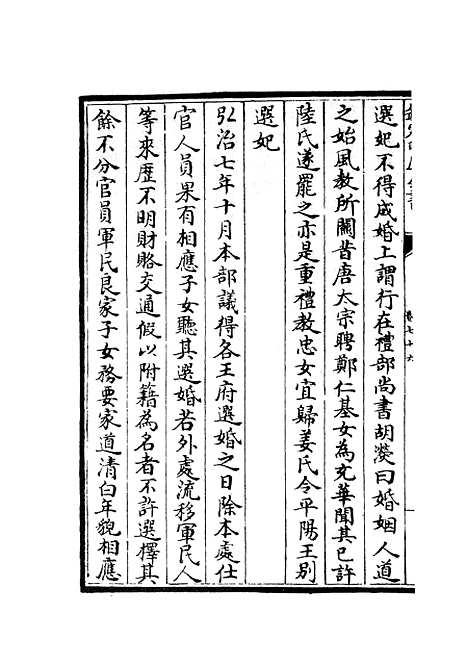 選妃不得成婚上謂行在禮部尚書胡濙曰婚姻人道
之始風教所關昔唐太宗聘鄭仁基女為充華聞其已許
陸氏遂罷之亦是重禮教忠女宜歸姜氏令平陽王別
選妃
弘治七年十月本部議得各王府選婚之日除本處仕
官人員果有相應子女聽其選婚若外處流移軍民人
等來歷不明財賂交通假以附籍為名者不許選擇其
餘不分官員軍民良家子女務要家道清白年貌相應